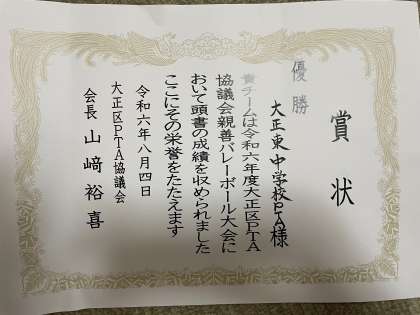 賞状
優勝
大正東中学校PTA様
貴チームは令和六年度大正区PTA
協議会親善バレーボール大会に
おいて頭書の成績を収められました
ここにその栄誉をたたえます
令和六年八月四日
大正区PTA協議会
会長 山﨑裕喜